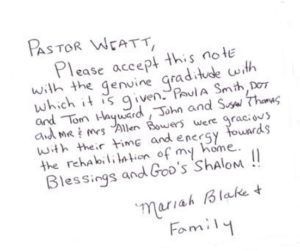 PASTOR WYATT,
Please accept this note
with the genuine graditude with
which it is given. PAULA Smith, DOT
and Tom Hayward, John and Susan Thomas
and MR & MRS Allen Bowers were gracious
with their time and energy towards
the rehabilitation of my home.
Blessings and GOD'S SHALOM !!
Mariah Blake &
Family